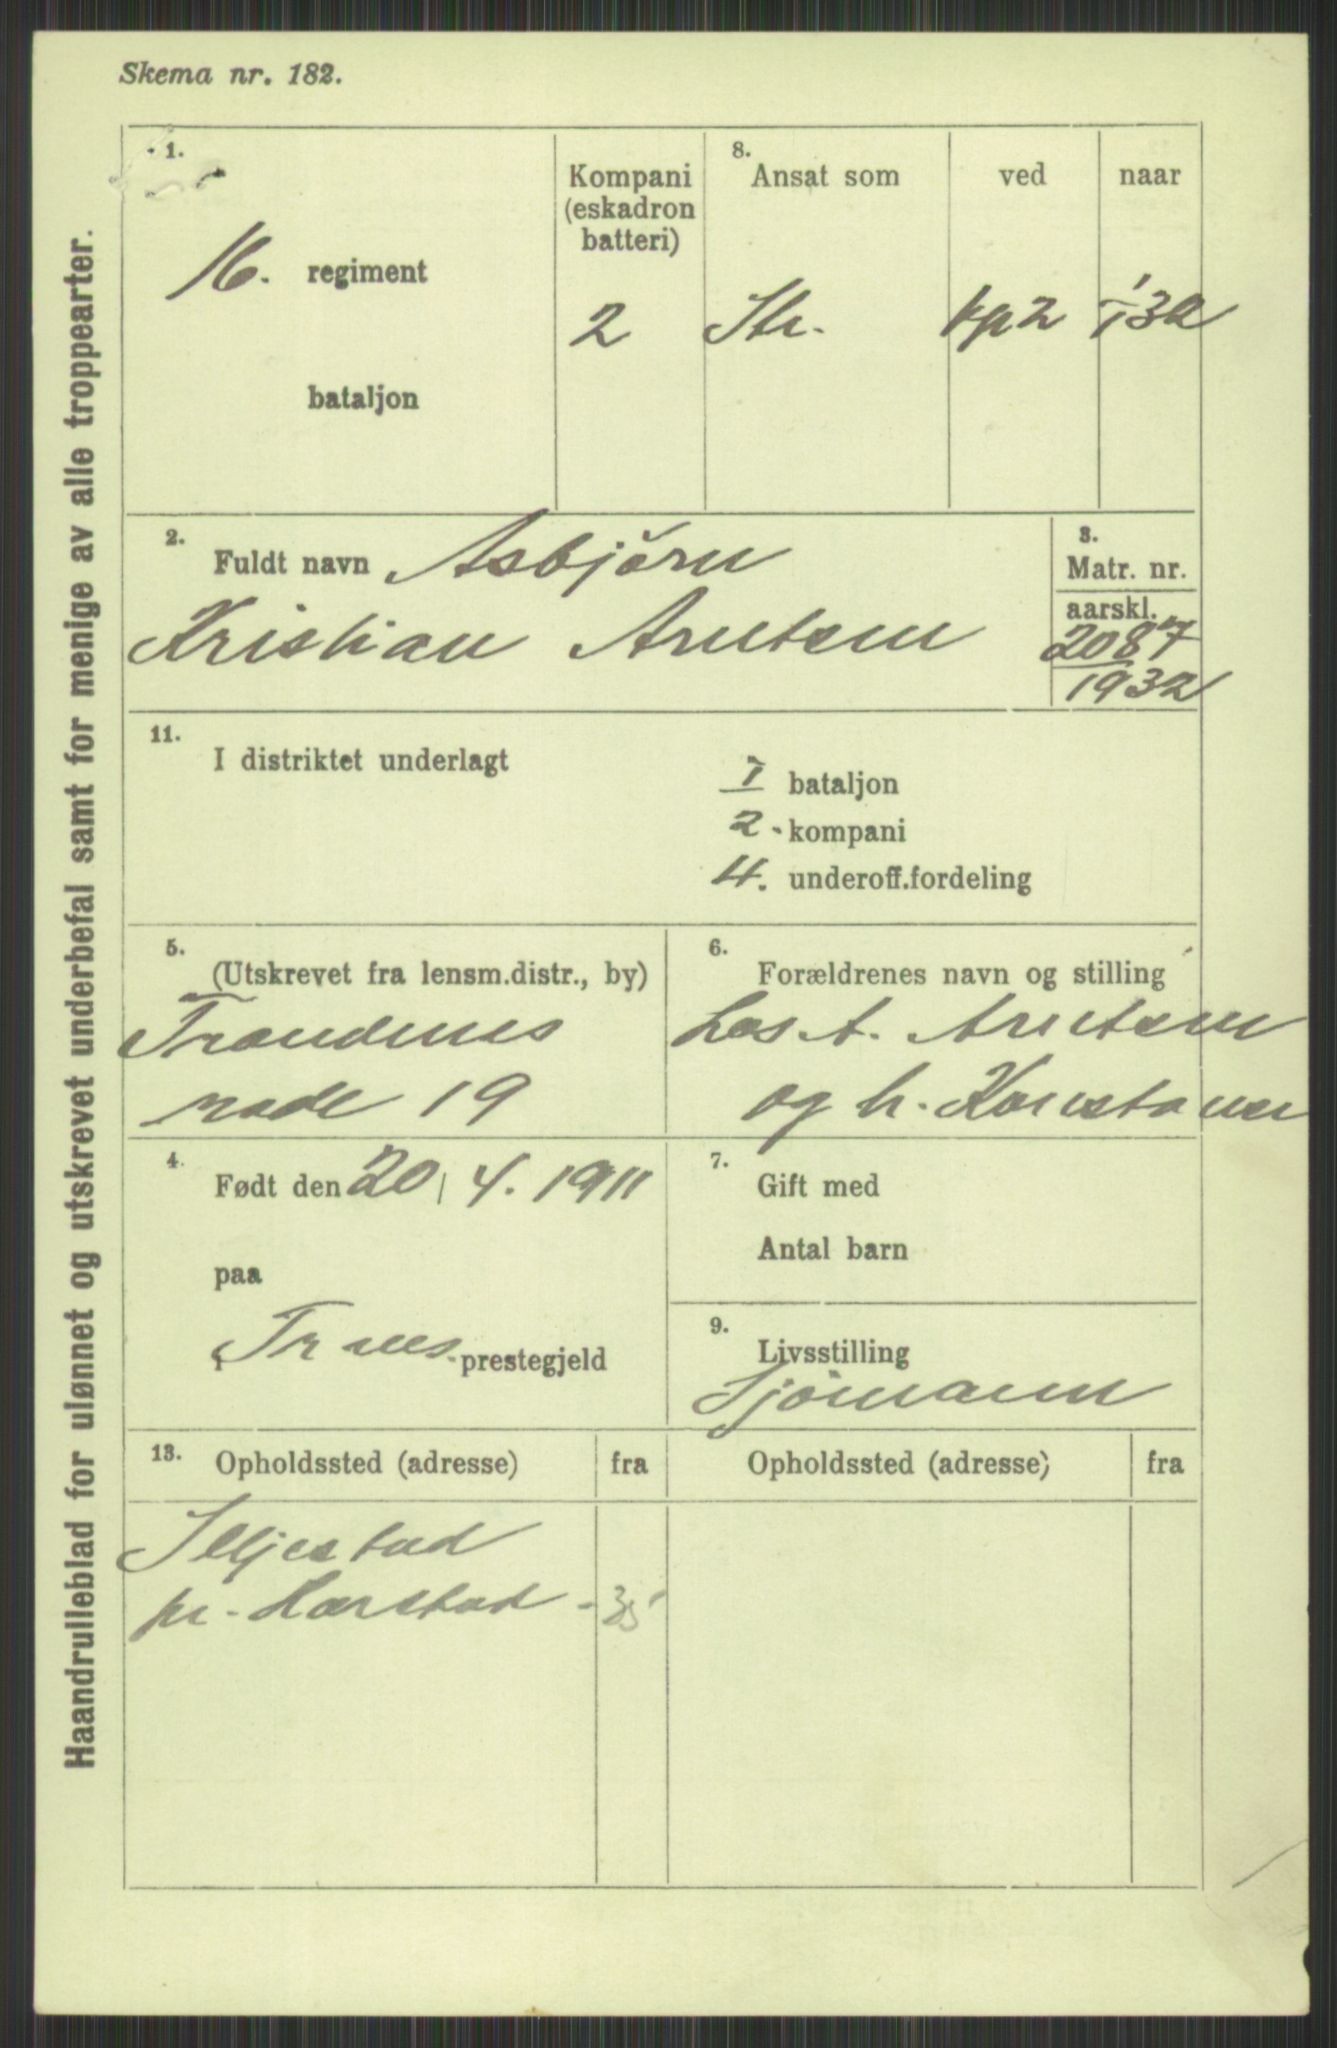 Skema nr. 182.
Haandrulleblad for ulønnet og utskrevet underbefal samt for menige av alle troppearter.
1.
16. regiment
bataljon
Kompani
(eskadron
batteri)
2
8.
Ansat som
Str.
ved
kp 2
naar
1/1 32
2.
Fuldt navn Asbjörn
Kristian Arntsen
3.
Matr. nr.
aarskl.
2087
1932
11.
I distriktet underlagt
I bataljon
2. kompani
4. underoff.fordeling
5.
(Utskrevet fra lensm.distr., by)
Trondenes
rode 19
6.
Forældrenes navn og stilling
A. Arntsen
og h. Konstanse
4.
Født den 20/4. 1911
paa
i Trnes-prestegjeld
7.
Gift med
Antal barn
9.
Livsstilling
Sjömann
13.
Opholdssted (adresse) fra
Opholdssted (adresse) fra
pr. Harstad - 35